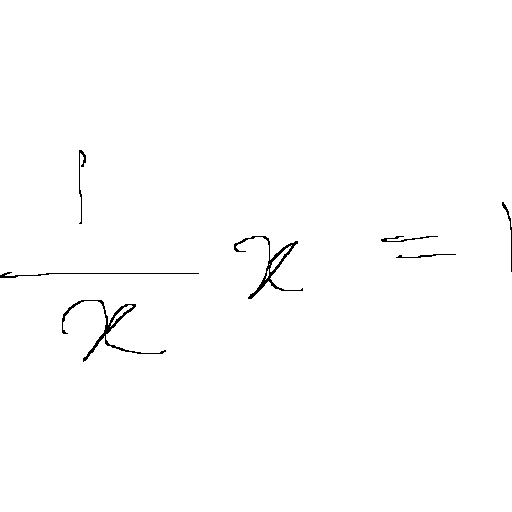 \frac{1}{x} x = 1